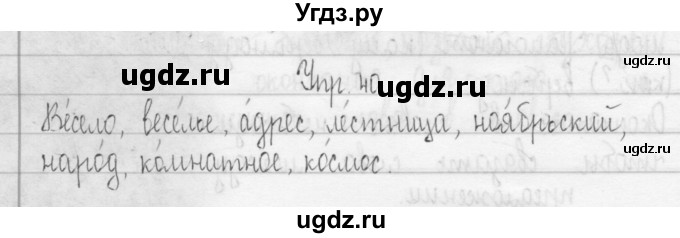 Угдз.ру
ugdz.ru
ugdz.ru
ugdz.ru
ugdz.ru
Упр. 40
Ве́село, весе́лье, а́дрес, ле́стница, ноя́брьский,
наро́д, ко́мнатное, ко́смос.
ugdz.ru
ugdz.ru
ugdz.ru